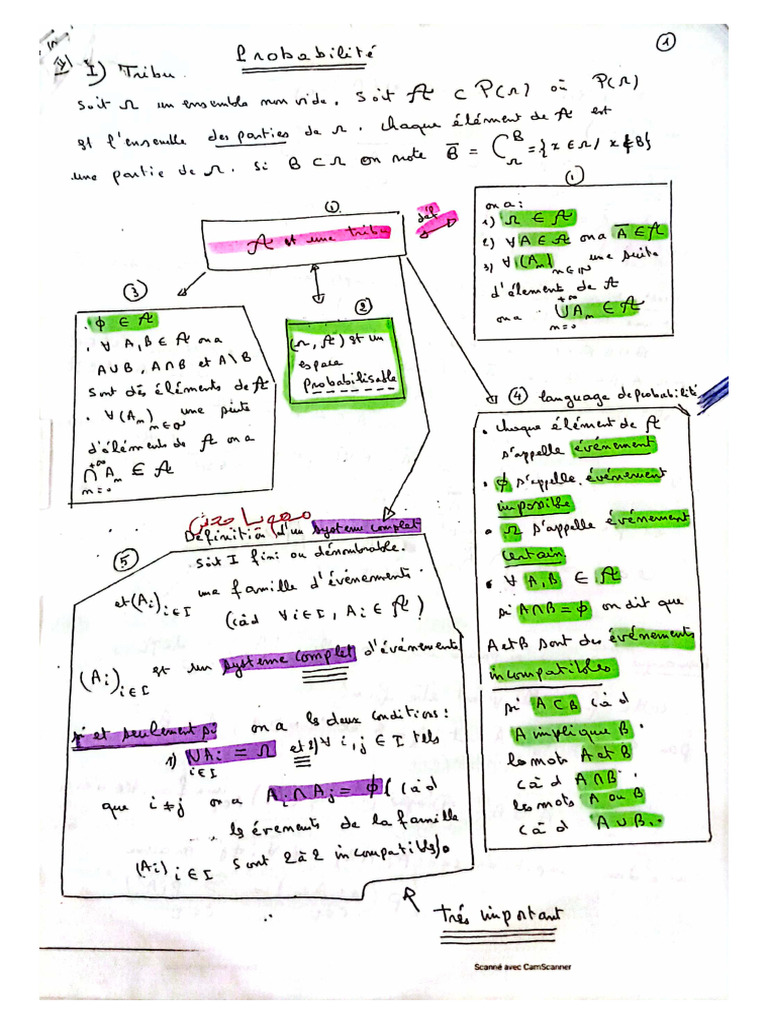 Probabilité
1
I) Tribu
Soit Ω un ensemble non vide. Soit 𝒜 ⊂ P(Ω) où P(Ω)
est l'ensemble des parties de Ω. Chaque élément de 𝒜 est
une partie de Ω. Si B ⊂ Ω on note B̅ = C_Ω^B = {x ∈ Ω / x ∉ B}
①
𝒜 est une tribu
déf
①
on a:
1) Ω ∈ 𝒜
2) ∀ A ∈ 𝒜 on a A̅ ∈ 𝒜
3) ∀ (A_n)_{n∈ℕ} une suite
d'élément de 𝒜
on a ⋃_{n=0}^{+∞} A_n ∈ 𝒜
②
(Ω, 𝒜) est un
espace
probabilisable
③
. ϕ ∈ 𝒜
. ∀ A, B ∈ 𝒜 on a
A∪B, A∩B et A\B
sont des éléments de 𝒜
. ∀ (A_n)_{n∈ℕ} une suite
d'éléments de 𝒜 on a
⋂_{n=0}^{+∞} A_n ∈ 𝒜
④ language de probabilité
. chaque élément de 𝒜
s'appelle événement
. ϕ s'appelle événement
impossible
. Ω s'appelle événement
certain.
. ∀ A, B ∈ 𝒜
si A∩B = ϕ on dit que
A et B sont des événements
incompatibles
si A ⊂ B càd
A implique B.
les mots A et B
càd A∩B.
les mots A ou B
càd A∪B.
Définition d'un systeme complet
⑤
soit I fini ou dénombrable.
et (A_i)_{i∈I} une famille d'événements.
(càd ∀ i∈I, A_i ∈ 𝒜)
(A_i)_{i∈I} est un systeme complet d'événements
si et seulement si on a les deux conditions:
1) ⋃_{i∈I} A_i = Ω et 2) ∀ i, j ∈ I tels
que i ≠ j on a A_i ∩ A_j = ϕ (càd
les évements de la famille
(A_i)_{i∈I} sont 2 à 2 incompatibles).
très important
Scanné avec CamScanner